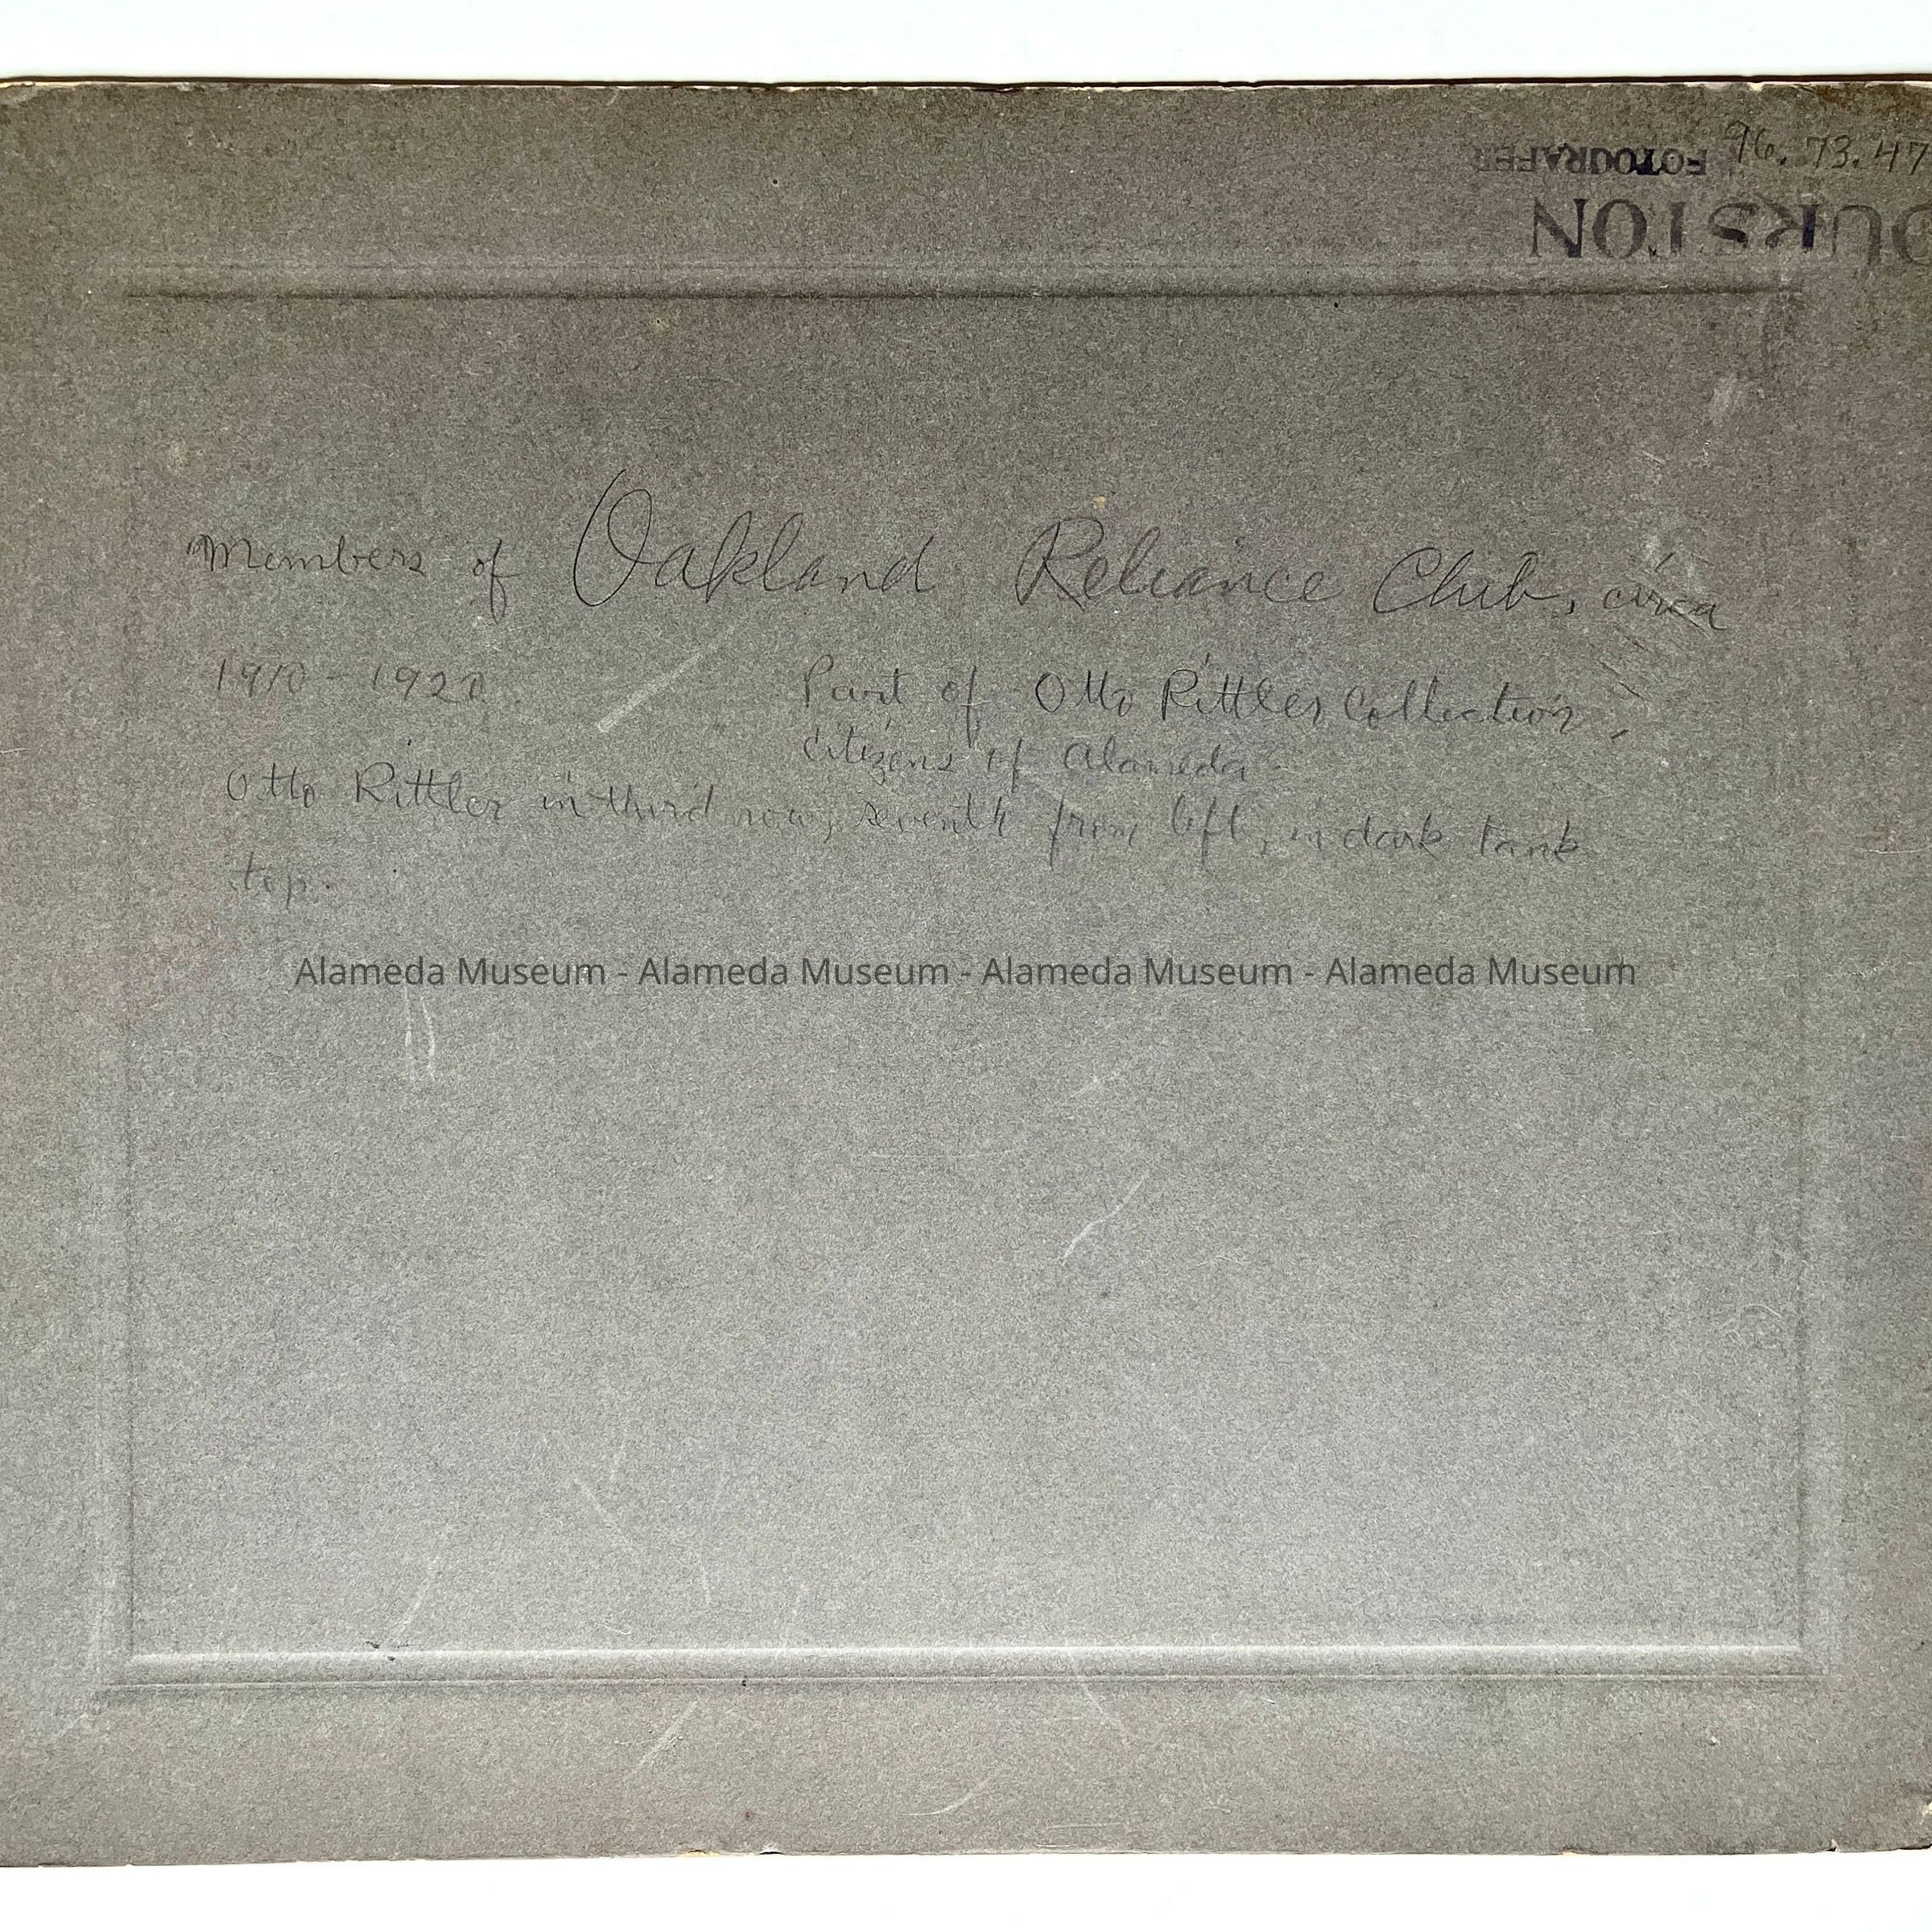 96.73.47
FOTOGRAFER
DURSTON
Members of Oakland Reliance Club, circa
1910-1920.
Part of Otto Rittler Collection,
citizens of Alameda.
Otto Rittler in third row, seventh from left, in dark tank
top.
Alameda Museum - Alameda Museum - Alameda Museum - Alameda Museum